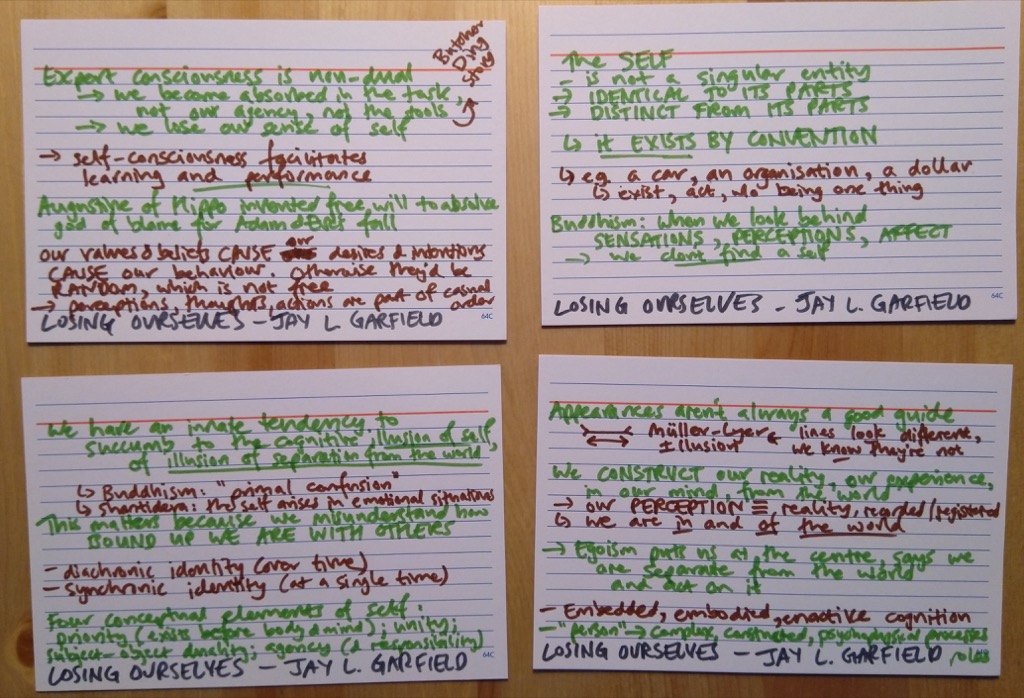 Butcher
Ding
Story
Expert consciousness is non-dual
→ we become absorbed in the task,
not our agency, not the tools
→ we lose our sense of self
→ self-consciousness facilitates
learning and performance
Augustine of Hippo invented free will to absolve
god of blame for Adam & Eve's fall
our values & beliefs CAUSE our desires & intentions
CAUSE our behaviour. Otherwise they'd be
RANDOM, which is not free
→ perceptions, thoughts, actions are part of causal
order
LOSING OURSELVES - JAY L GARFIELD
64C
The SELF
- is not a singular entity
→ IDENTICAL TO ITS PARTS
→ DISTINCT FROM ITS PARTS
↳ it EXISTS BY CONVENTION
↳ eg a car, an organisation, a dollar
↳ exist, act, no being one thing
Buddhism: when we look behind
SENSATIONS, PERCEPTIONS, AFFECT
→ we don't find a self
LOSING OURSELVES - JAY L. GARFIELD
64C
We have an innate tendency to
succumb to the cognitive illusion of self,
of illusion of separation from the world
↳ Buddhism: "primal confusion"
↳ Shantideva: the self arises in emotional situations
This matters because we misunderstand how
BOUND UP WE ARE WITH OTHERS
- diachronic identity (over time)
- synchronic identity (at a single time)
Four conceptual elements of self:
priority (exists before body & mind); unity;
subject-object duality; agency (& responsibility)
LOSING OURSELVES - JAY L. GARFIELD
64C
Appearances aren't always a good guide
Müller-Lyer ← lines look different,
illusion we know they're not
We CONSTRUCT our reality, our experience,
in our mind, from the world
→ our PERCEPTION ≡ reality, regarded/registered
↳ we are in and of the world
→ Egoism puts us at the centre, says we
are separate from the world
and act on it
- Embedded, embodied, enactive cognition
- "person" → complex, constructed, psychophysical processes
roles
LOSING OURSELVES - JAY L. GARFIELD